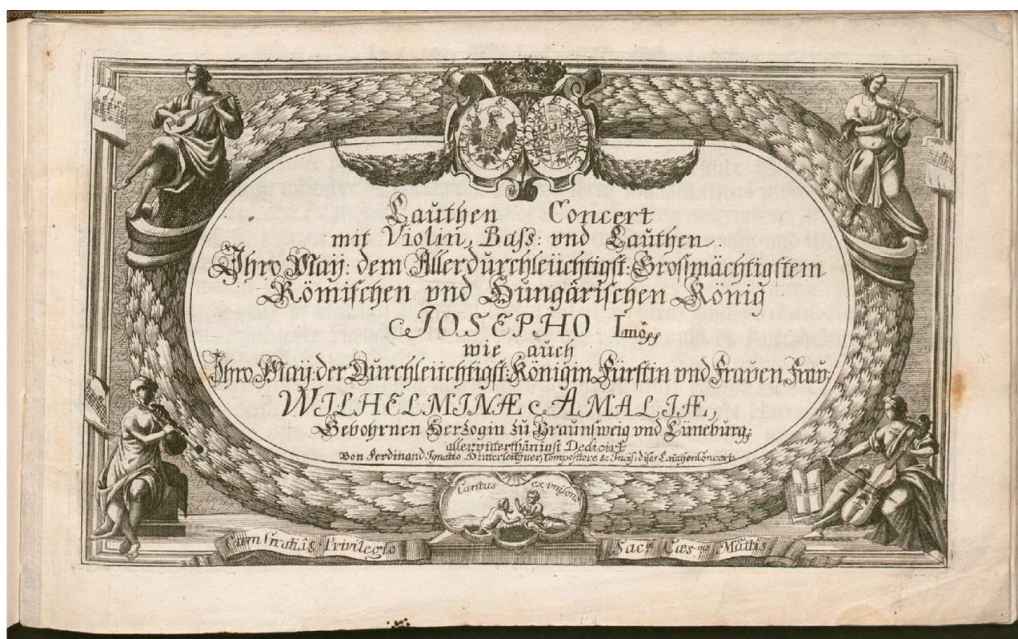 Lauthen Concert
mit Violin, Bass: und Lauthen
Ihro May: dem Allerdurchleüchtigst: Grosmächtigstem
Römischen vnd Hungärischen König
JOSEPHO Imo
wie auch
Ihro May: der Durchleüchtigst: Königin Fürstin vnd Frauen Frau:
WILHELMINÆ AMALIÆ,
Gebohrnen Herzogin zu Braunsweig vnd Lüneburg;
allervnterthänigst Dedicirt
Von Ferdinand Ignatio Hinterleithner, Compositore
Cantus ex unisono
Cum Gratia et Privilegio
Sac: Cæs: Mattis